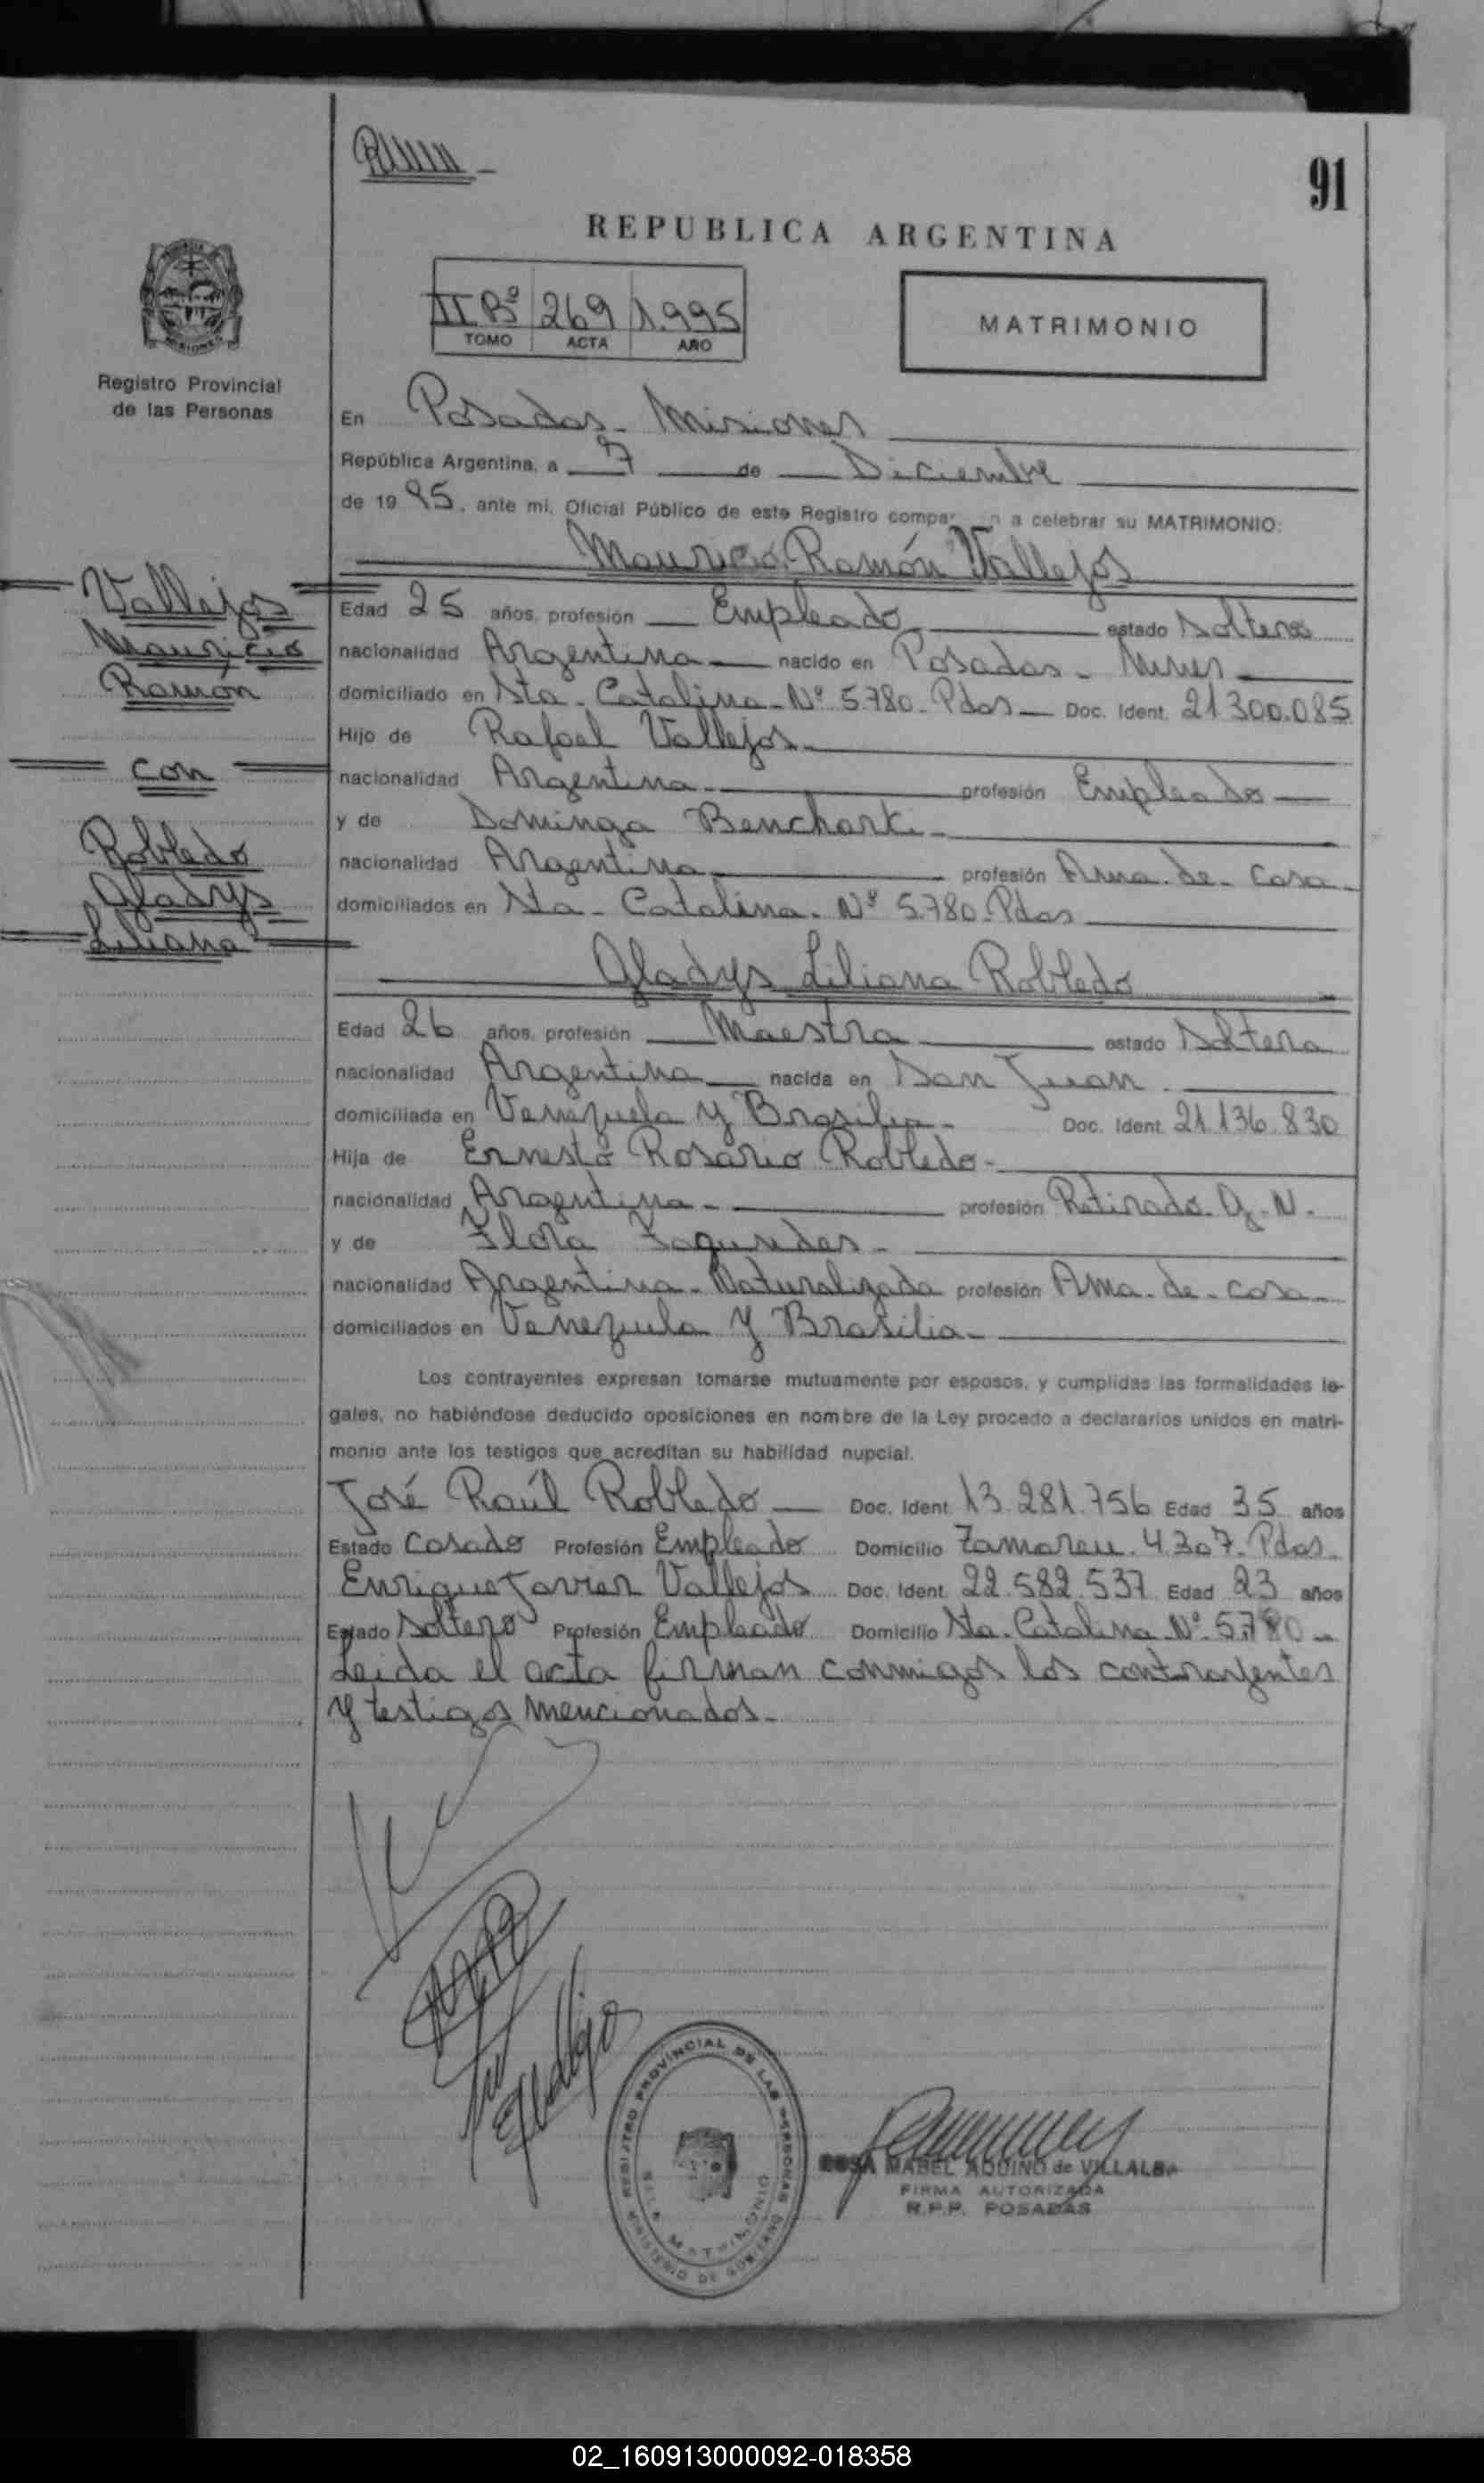 91
REPUBLICA ARGENTINA
II Bº 269 1.995
TOMO ACTA AÑO
MATRIMONIO
Registro Provincial
de las Personas
En Posadas - Misiones
República Argentina, a 7 de Diciembre
de 1995, ante mí, Oficial Público de este Registro a celebrar su MATRIMONIO:
Mauricio Ramón Vallejos
Vallejos
Mauricio
Ramón
con
Robledo
Gladys
Liliana
Edad 25 años, profesión Empleado estado Soltero
nacionalidad Argentina nacido en Posadas - Mnes
domiciliado en Sta. Catalina - Nº 5.780 - Pdas Doc. Ident. 21.300.085
Hijo de Rafael Vallejos
nacionalidad Argentina profesión Empleado
y de Dominga
nacionalidad Argentina profesión Ama - de - casa
domiciliados en Sta - Catalina - Nº 5.780 - Pdas
Gladys Liliana Robledo
Edad 26 años, profesión Maestra estado Soltera
nacionalidad Argentina nacida en San Juan
domiciliada en Venezuela y Brasilia - Doc. Ident. 21.136.830
Hija de Ernesto Rosario Robledo -
nacionalidad Argentina - profesión Retirado G. N.
y de Flora
nacionalidad Argentina - Naturalizada profesión Ama - de - casa
domiciliados en Venezuela y Brasilia -
Los contrayentes expresan tomarse mutuamente por esposos, y cumplidas las formalidades le-
gales, no habiéndose deducido oposiciones en nombre de la Ley procedo a declararlos unidos en matri-
monio ante los testigos que acreditan su habilidad nupcial.
José Raúl Robledo Doc. Ident. 13.281.756 Edad 35 años
Estado Casado Profesión Empleado Domicilio 4.307 - Pdas
Enrique Javier Vallejos Doc. Ident. 22.582.537 Edad 23 años
Estado Soltero Profesión Empleado Domicilio Sta. Catalina Nº 5.780 -
Leida el acta firman conmigos los contrayentes
y testigos mencionados -
REGISTRO PROVINCIAL DE LAS PERSONAS
MATRIMONIO
MINISTERIO DE GOBIERNO
ROSA MABEL AQUINO de VILLALBA
FIRMA AUTORIZADA
R.P.P. POSADAS
02_160913000092-018358